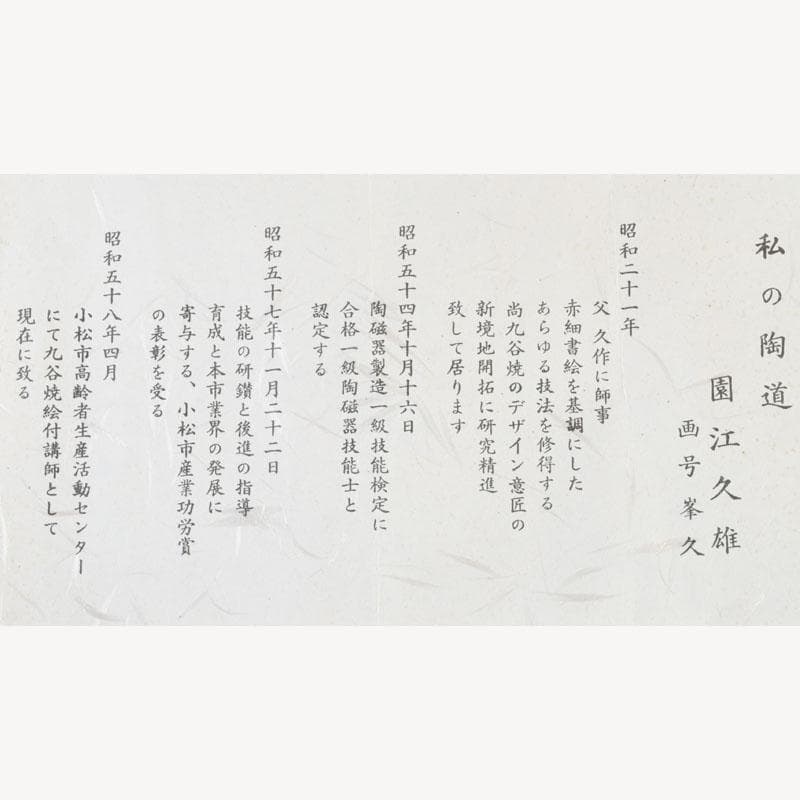 私の陶道
園江久雄
画号峯久
昭和二十一年
父 久作に師事
赤細書絵を基調にした
あらゆる技法を修得する
尚九谷焼のデザイン意匠の
新境地開拓に研究精進
致して居ります
昭和五十四年十月十六日
陶磁器製造一級技能検定に
合格一級陶磁器技能士と
認定する
昭和五十七年十一月二十二日
技能の研鑽と後進の指導
育成と本市業界の発展に
寄与する、小松市産業功労賞
の表彰を受る
昭和五十八年四月
小松市高齢者生産活動センター
にて九谷焼絵付講師として
現在に致る